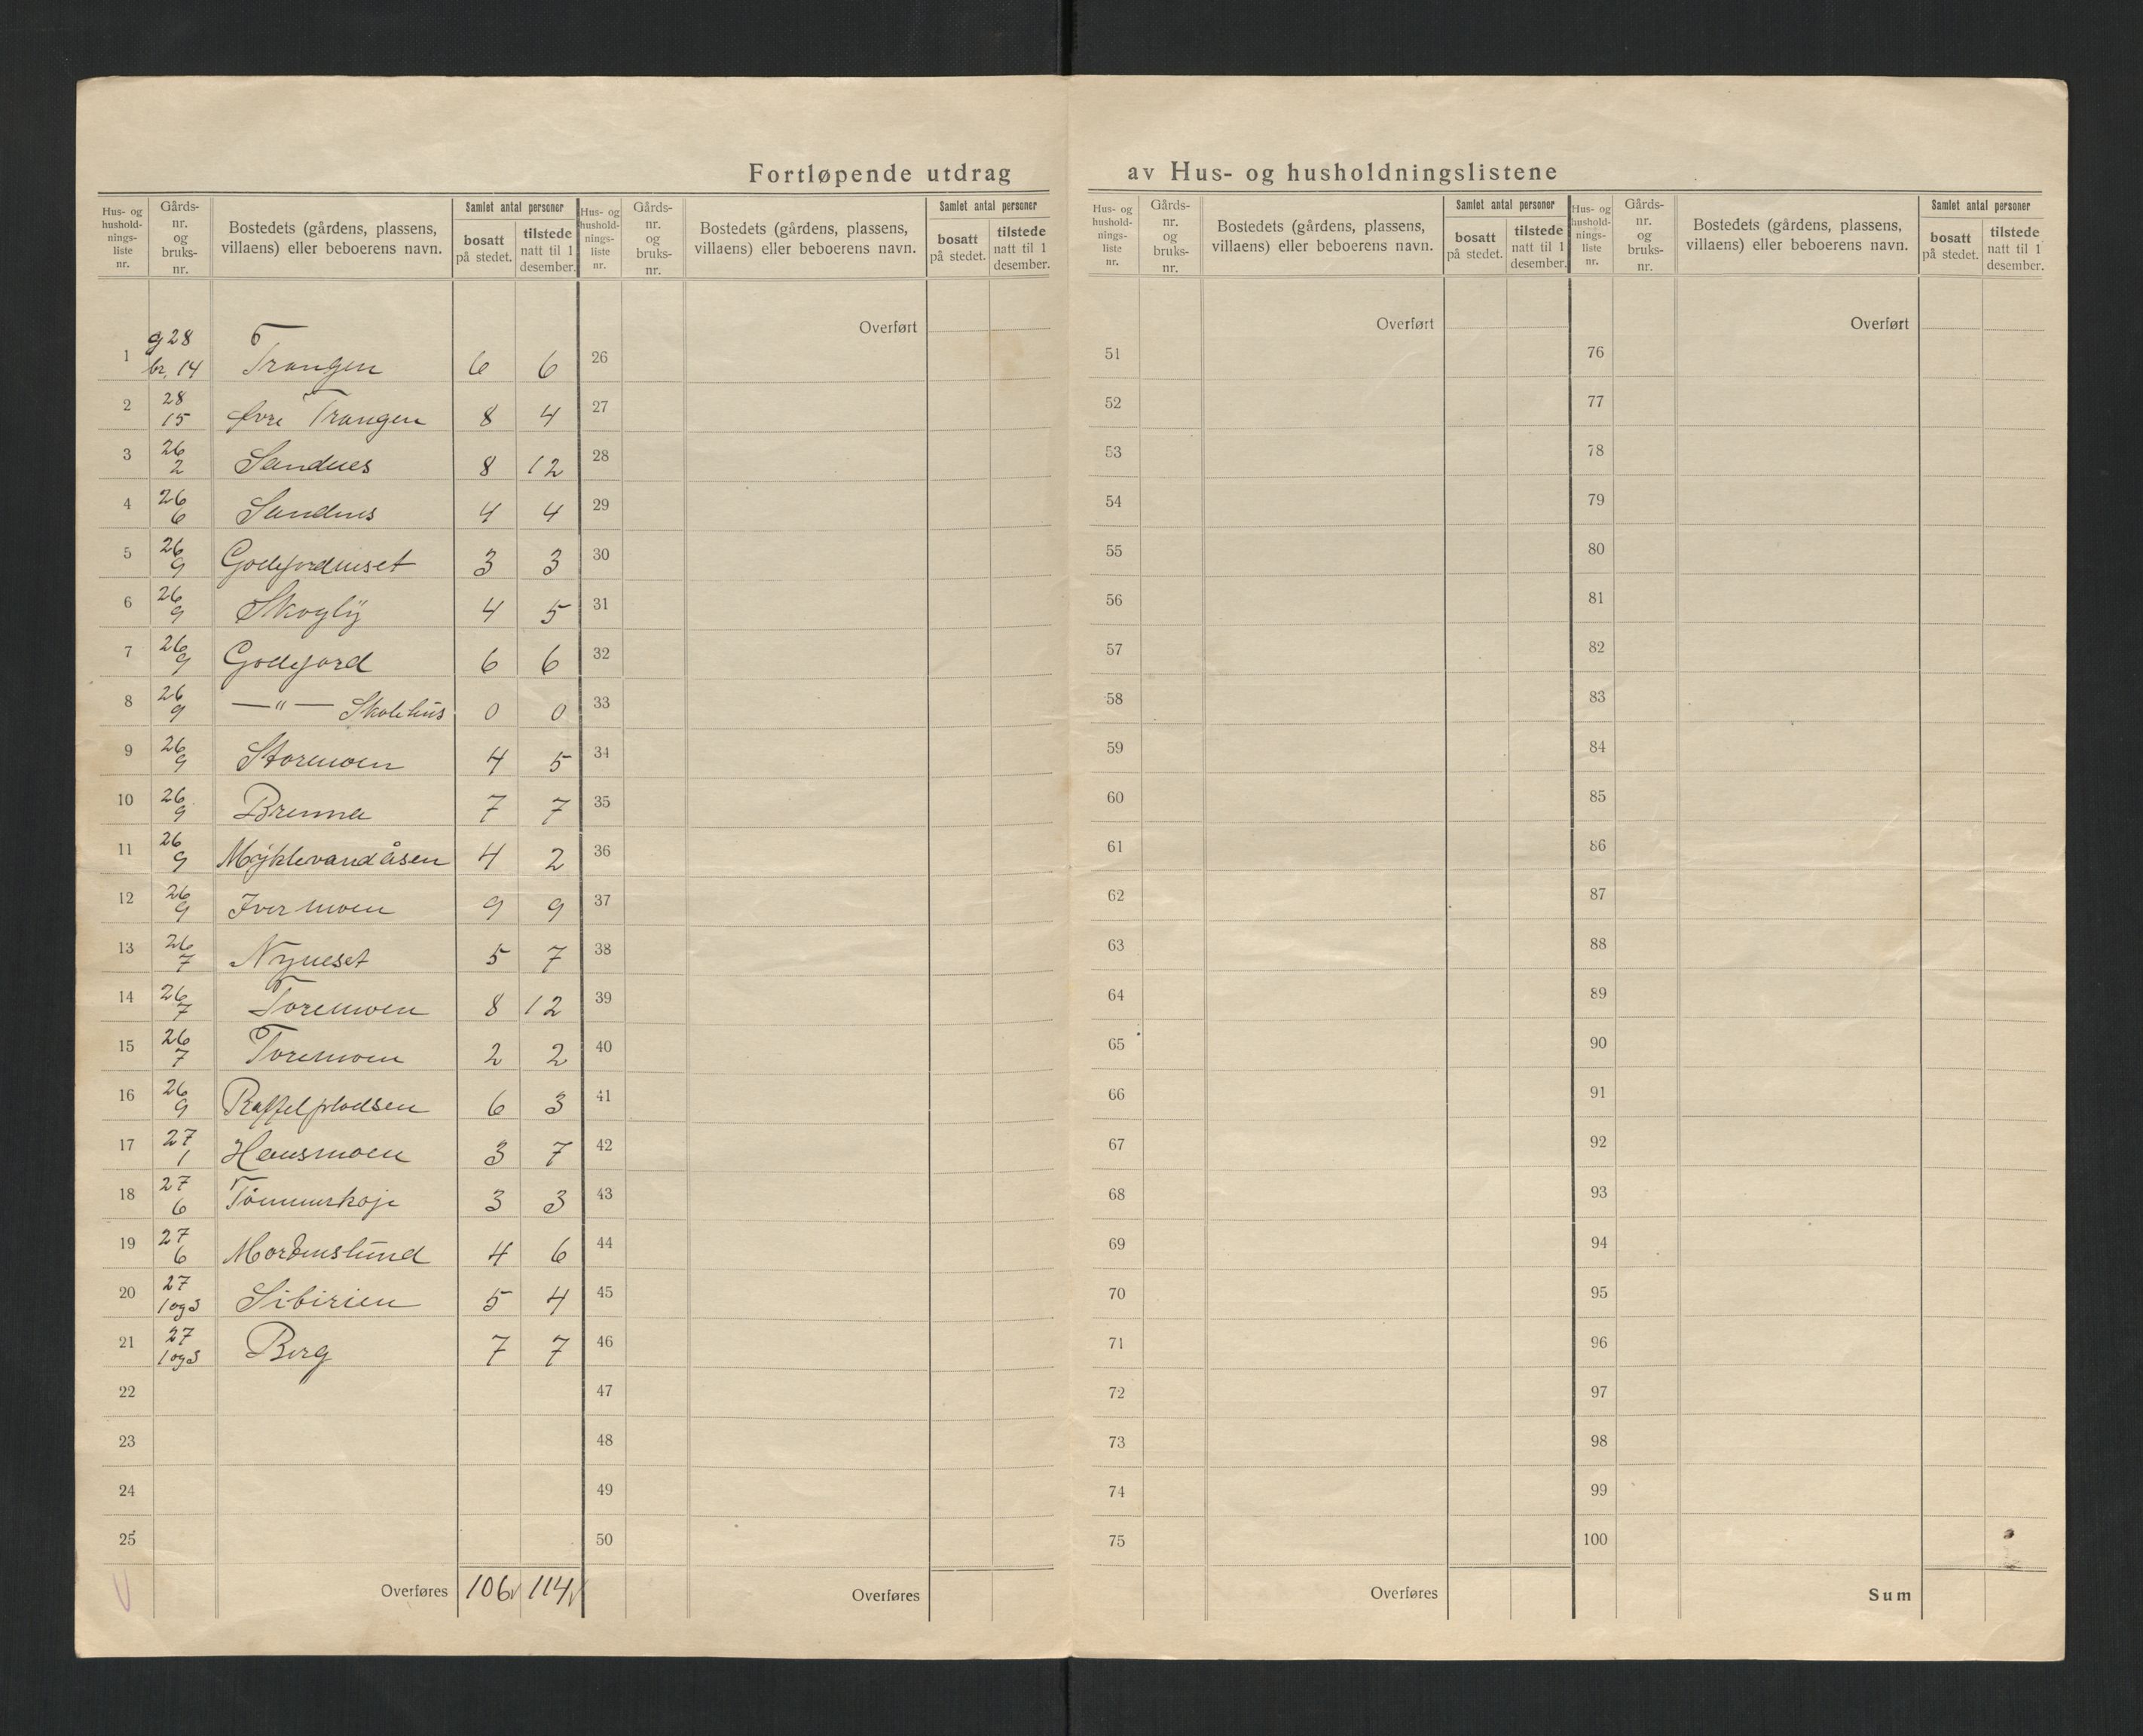 Fortløpende utdrag av Hus- og husholdningslistene
Hus- og hushold-nings-liste nr. Gårds-nr. og bruks-nr. Bostedets (gårdens, plassens, villaens) eller beboerens navn. Samlet antal personer bosatt på stedet. tilstede natt til 1 desember.
Hus- og hushold-nings-liste nr. Gårds-nr. og bruks-nr. Bostedets (gårdens, plassens, villaens) eller beboerens navn. Samlet antal personer bosatt på stedet. tilstede natt til 1 desember.
Hus- og hushold-nings-liste nr. Gårds-nr. og bruks-nr. Bostedets (gårdens, plassens, villaens) eller beboerens navn. Samlet antal personer bosatt på stedet. tilstede natt til 1 desember.
Hus- og hushold-nings-liste nr. Gårds-nr. og bruks-nr. Bostedets (gårdens, plassens, villaens) eller beboerens navn. Samlet antal personer bosatt på stedet. tilstede natt til 1 desember.
Overført Overført Overført
1 g 28 br. 14 Trangen 6 6 26 51 76
2 28 15 Øvre Trangen 8 4 27 52 77
3 26 2 Sandnes 8 12 28 53 78
4 26 6 Sandnes 4 4 29 54 79
5 26 9 3 3 30 55 80
6 26 9 Skoglÿ 4 5 31 56 81
7 26 9 Godejord 6 6 32 57 82
8 26 9 —"— Skolehus 0 0 33 58 83
9 26 9 Storemoen 4 5 34 59 84
10 26 9 Brenna 7 7 35 60 85
11 26 9 Mÿklevandåsen 4 2 36 61 86
12 26 9 Ivermoen 9 9 37 62 87
13 26 7 Nyneset 5 7 38 63 88
14 26 7 Toremoen 8 12 39 64 89
15 26 7 Toremoen 2 2 40 65 90
16 26 9 6 3 41 66 91
17 27 1 Hansmoen 3 7 42 67 92
18 27 6 3 3 43 68 93
19 27 6 4 6 44 69 94
20 27 1 og 3 Sibirien 5 4 45 70 95
21 27 1 og 3 Berg 7 7 46 71 96
22 47 72 97
23 48 73 98
24 49 74 99
25 50 75 100
Overføres 106 114 Overføres Overføres Sum